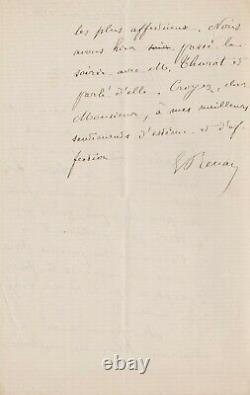 les plus affectueux. Nous
avons hier soir passé la
soirée avec M. Thurot et
parlé d'elle. Croyez, cher
Monsieur, à mes meilleurs
sentiments d'estime et d'af
fection
E Renan
© ebay.com